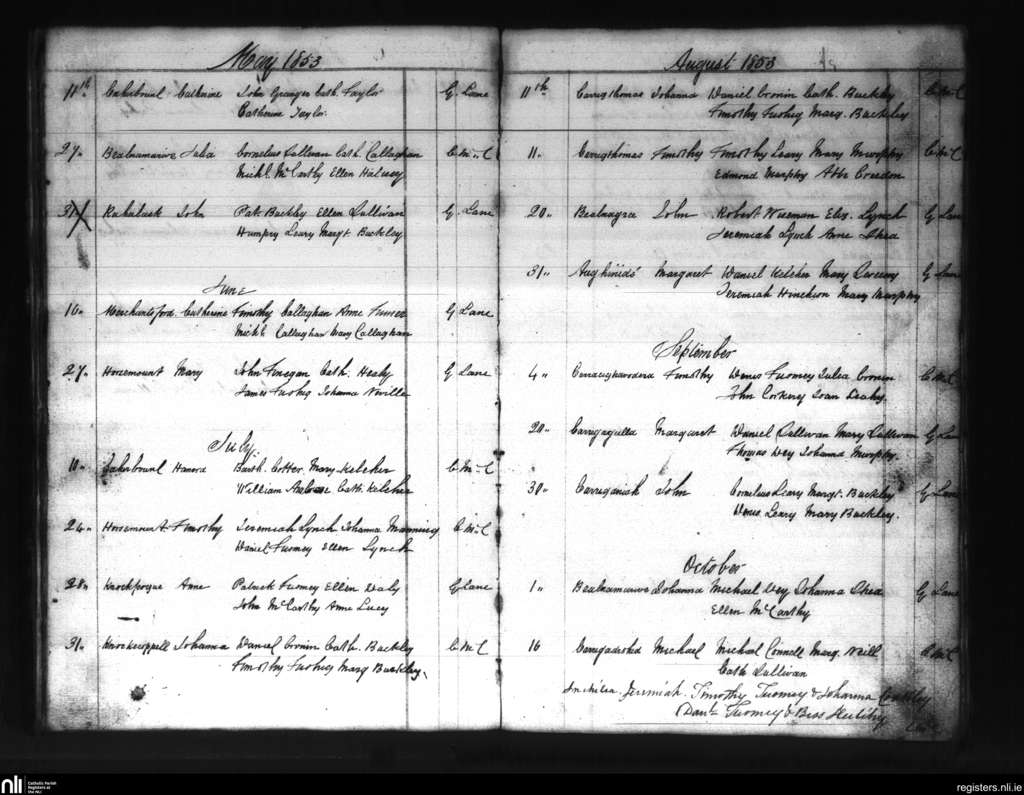 May 1853
11th Caherbirnl Catherine John Granger Cath. Taylor G Lane
Catherine Taylor.
27 Bealnamarive Julia Cornelius Sullivan Cath. Callaghan C McC
Michl. McCarthy Ellen Halissey
31 John Pat Buckley Ellen Sullivan G. Lane
Humpry Leary Margt Buckley
June
16 Merchantsford Catherine Timothy Callaghan Anne G Lane
Michl. Callaghan Mary Callaghan
27 Horsemount Mary John Finegan Cath. Healy G Lane
James Johanna Neville
July
10 Honora Barth. Cotter Mary Kelcher C McC
William Cath. Kelcher
24 Horsemount Timothy Jeremiah Lynch Johanna Manning C McC
Daniel Tuomey Ellen Lynch
28 Anne Patrick Tuomey Ellen Daly G Lane
John McCarthy Anne Lucey
31 Johanna Daniel Cronin Cath. Buckley C McC
Timothy Marg Buckley
August 1853
11th Carrigthomas Johanna Daniel Cronin Cath. Buckley C McC
Timothy Marg. Buckley
11 Carrigthomas Timothy Timothy Leary Mary Murphy C McC
Edmond Murphy Abbe Creedon
20 Bealnagra John Robert Elis. Lynch G Lane
Jeremiah Lynch Anne Shea
31 Margaret Daniel Kelcher Mary G Lane
Jeremiah Mary Murphy
September
4 Timothy Denis Tuomey Julia Cronin C McC
John Corkery Joan Leahy.
20 Carrigagulla Margaret Daniel Sullivan Mary Sullivan G Lane
Thomas Dey Johanna Murphy.
30 John Cornelius Leary Margt. Buckley G Lane
Denis Leary Mary Buckley.
October
1 Bealnamarive Johanna Michael Dey Johanna Shea G Lane
Ellen McCarthy
16 Michael Michael Connell Marg. Neill C McC
Cath Sullivan
Inchilea Jeremiah. Timothy Tuomey & Johanna
Danl. Tuomey & Bess
nli Catholic Parish
Registers at
the NLI
registers.nli.ie